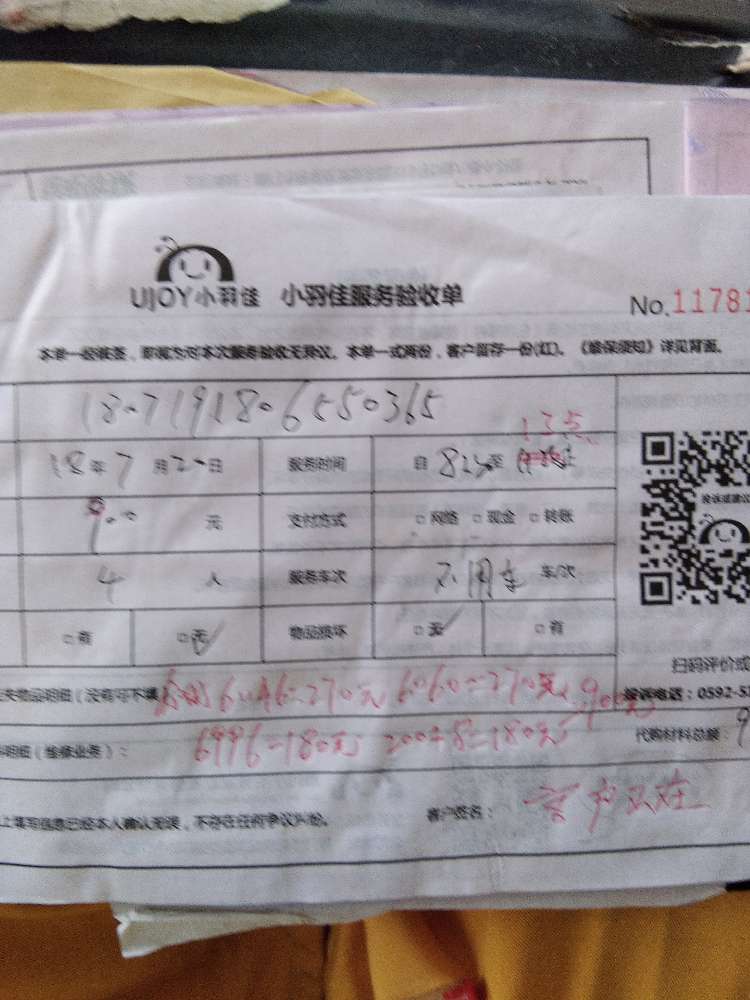 UJOY小羽佳 小羽佳服务验收单
No.11781
本单一经核签，即视为对本次服务验收无异议。本单一式两份，客户留存一份(红)。《维保须知》详见背面。
1807191806550365
18年7月20日 服务时间 自 8:30至 13点
900 元 支付方式 □网络 □现金 □转账
4 人 服务车次 不用车 车/次
□有 □无✓ 物品损坏 □无✓ □有
扫码评价或
失物品明细（没有可不填 6046=270元 6060=270元 900元
投诉电话：0592-5
明细（维修业务）： 6996=180元 2004 =180元
代购材料总额：9
上填写信息已经本人确认无误，不存在任何争议纠纷。 客户签名： 客户不在